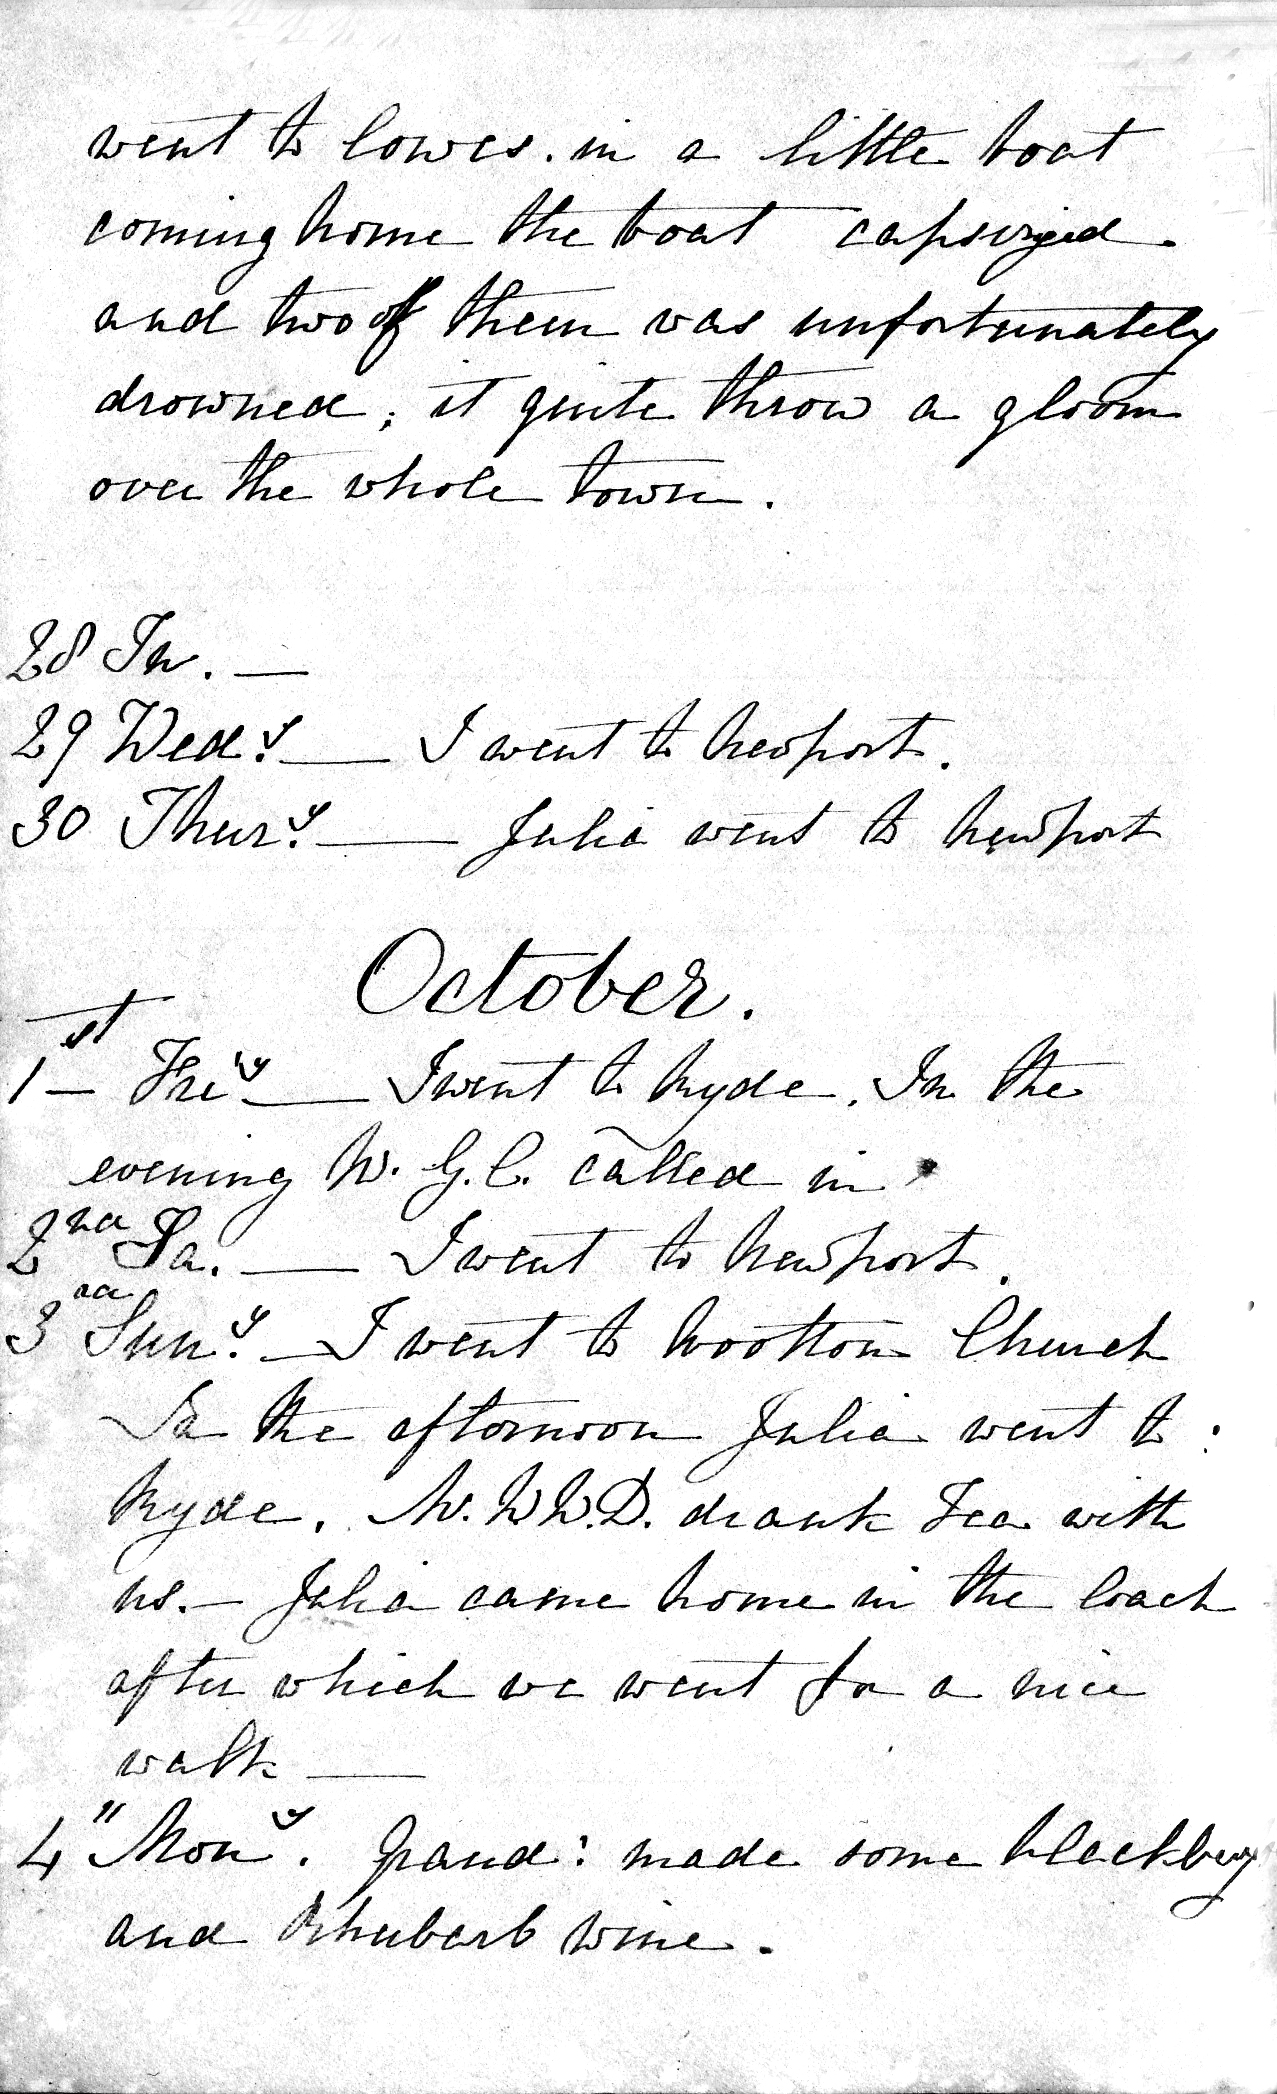 went to Cowes. in a little boat
coming home the boat capsized.
and two of them was unfortunately
drowned; it quite throw a gloom
over the whole town.
28 Tu. —
29 Wed.y — I went to Newport.
30 Thur.y — Julia went to Newport
October.
1st — Fri.y — I went to Ryde. In the
evening W. G. C. called in
2nd Sa. — I went to Newport.
3rd Sun.y — I went to Wootton Church
In the afternoon Julia went to
Ryde. W. D. drank Tea with
us. — Julia came home in the Coach
after which we went for a nice
walk —
4" Mon.y Grand: made some blackbery
and Rhubarb Wine.